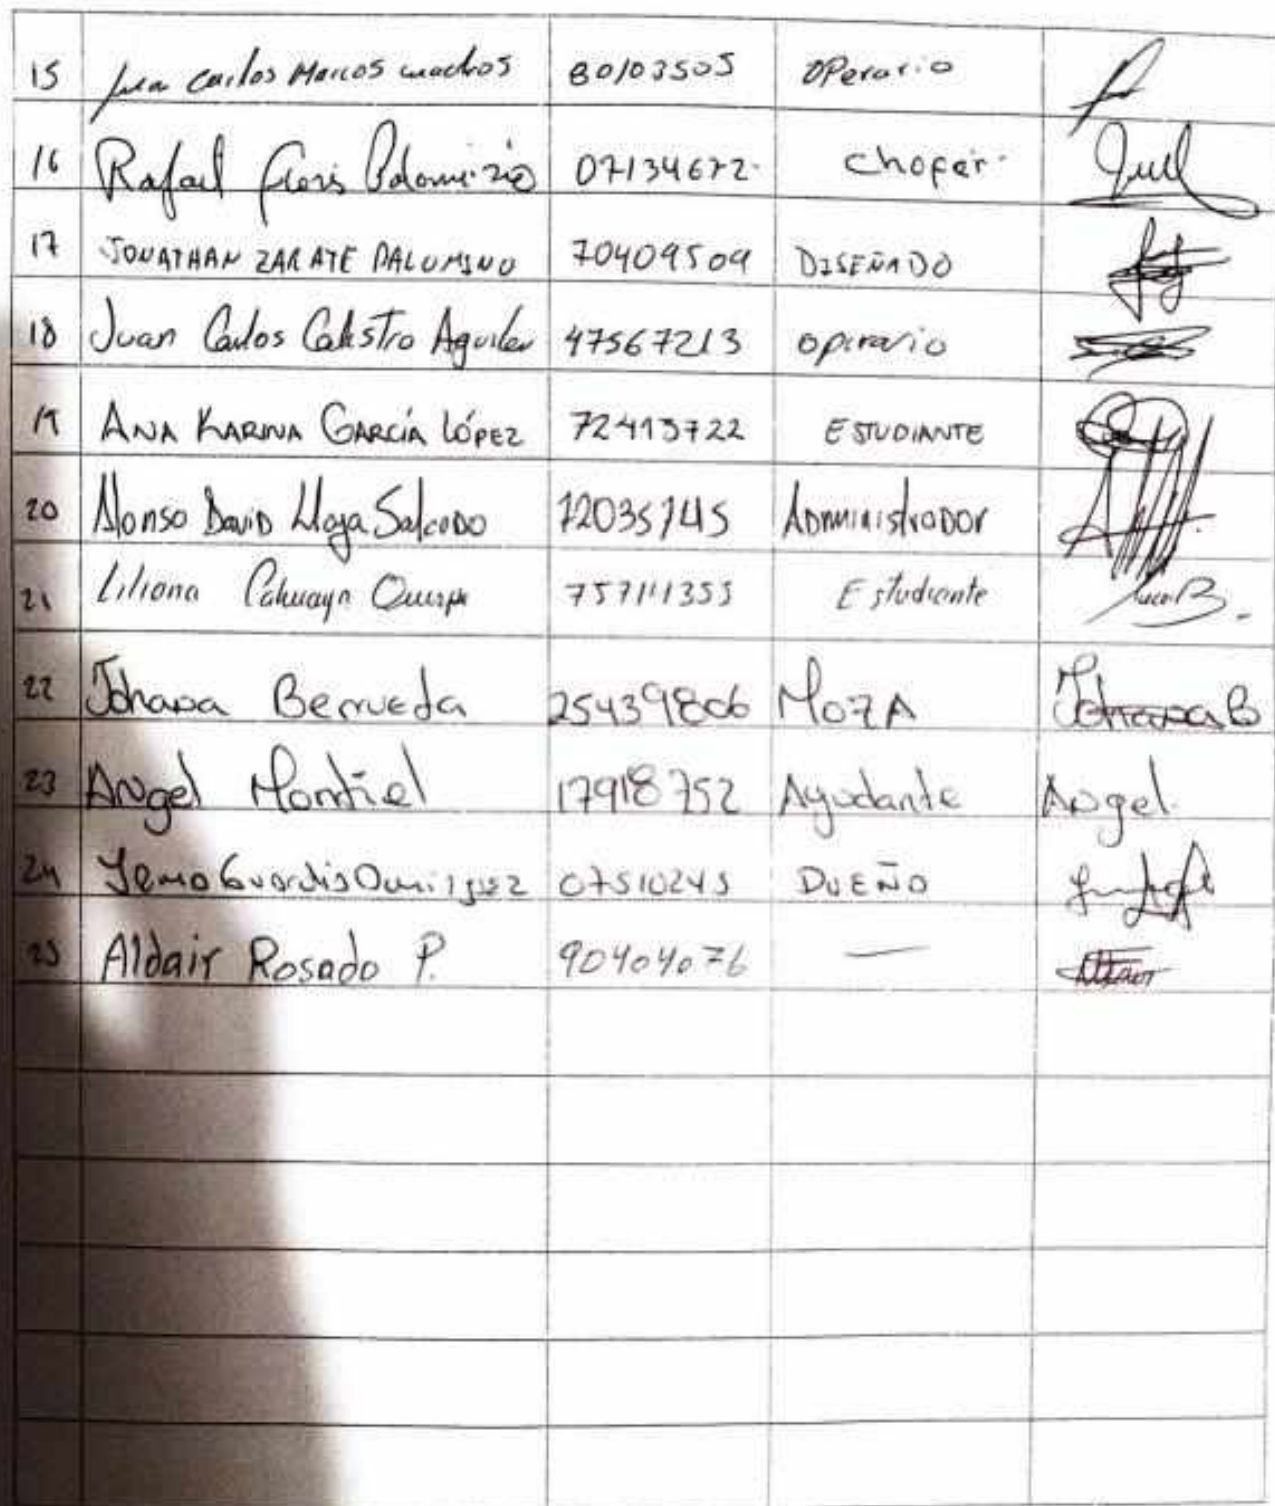 15 Juan Carlos Marcos 80103505 OPerario
16 Rafael 07134672 chofer
17 JONATHAN ZARATE PALOMINO 70409509 DISEÑADO
18 Juan Carlos Calistro Aguilar 47567213 operario
19 ANA KARINA GARCÍA LÓPEZ 72413722 ESTUDIANTE
20 Alonso David Lloja Salcedo 72035745 Administrador
21 Liliana Quispe Estudiante
22 Johana Berrueda 25439806 MOZA Johana B
23 Angel Montiel 17918752 Ayudante Angel
24 07510245 DUEÑO
25 Aldair Rosado P. 90404076 —